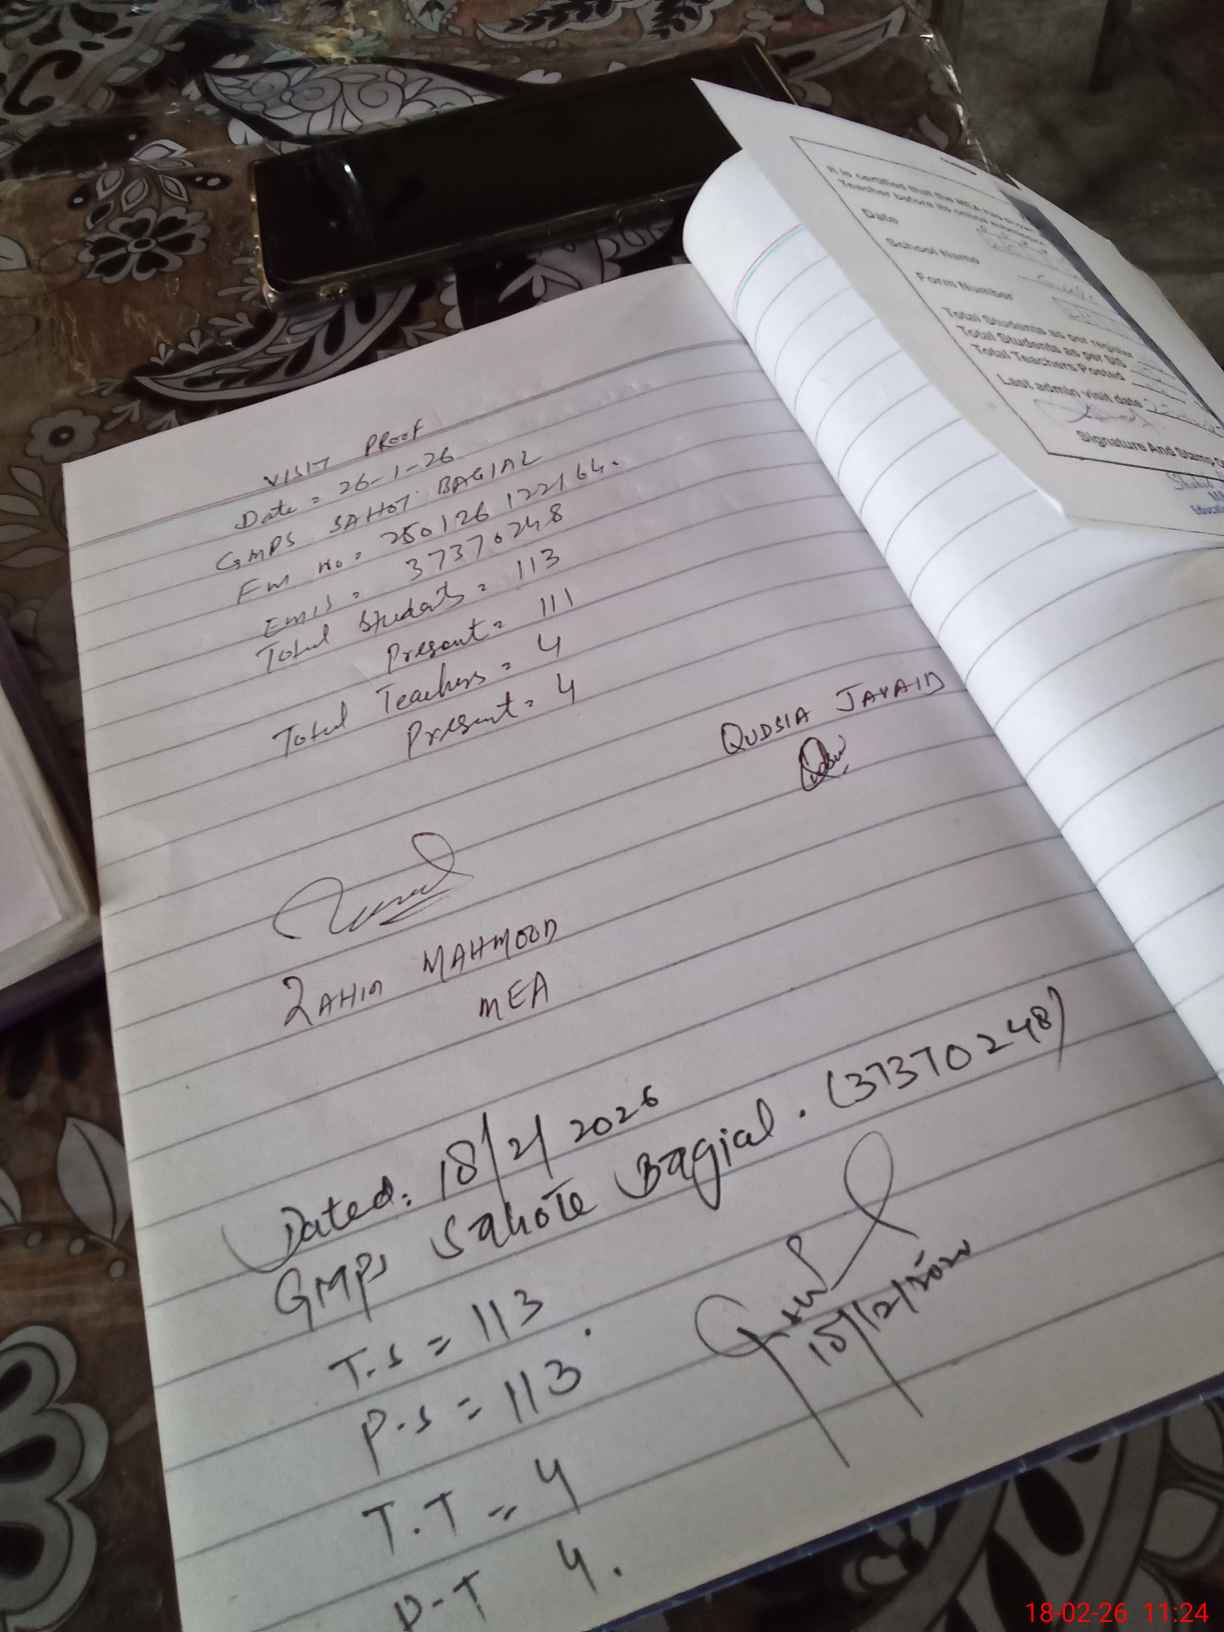 VISIT PROOF
Date = 26-1-26
GMPS SAHOT BAGIAL
Fm No = 250126122164.
EMIS = 37370248
Total Students = 113
Present = 111
Total Teachers = 4
Present = 4
QUDSIA JAVAID
ZAHID MAHMOOD
MEA
Dated: 18/2/2026
GMPS Sahote Bagial. (37370248)
T.S = 113
P.S = 113
T.T = 4
P-T 4.
It is certified that the MEA has
Teacher before its
Date
School Name
Form Number
Total Students as per register
Total Students as per SIS
Total Teachers Posted
Last admin visit date
Signature And Stamp
18-02-26 11:24